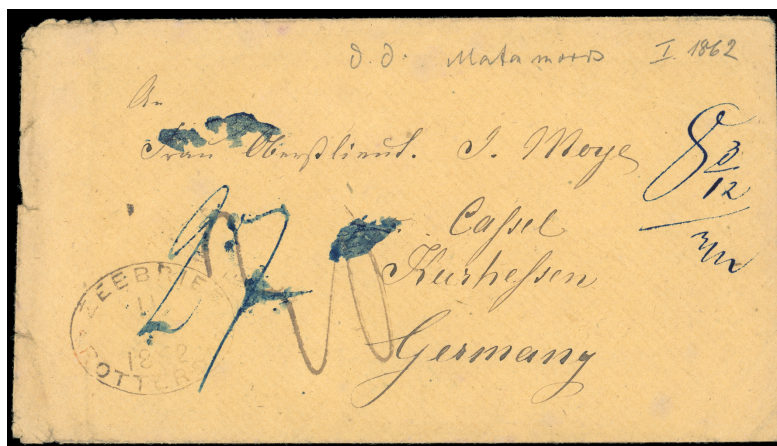 d. d. Matamoros I. 1862
An
Frau Oberstlieut. J. Moye
Cassel
Kurhessen
Germany
3/12
ZEEBRIEF
11
1862
ROTTERD